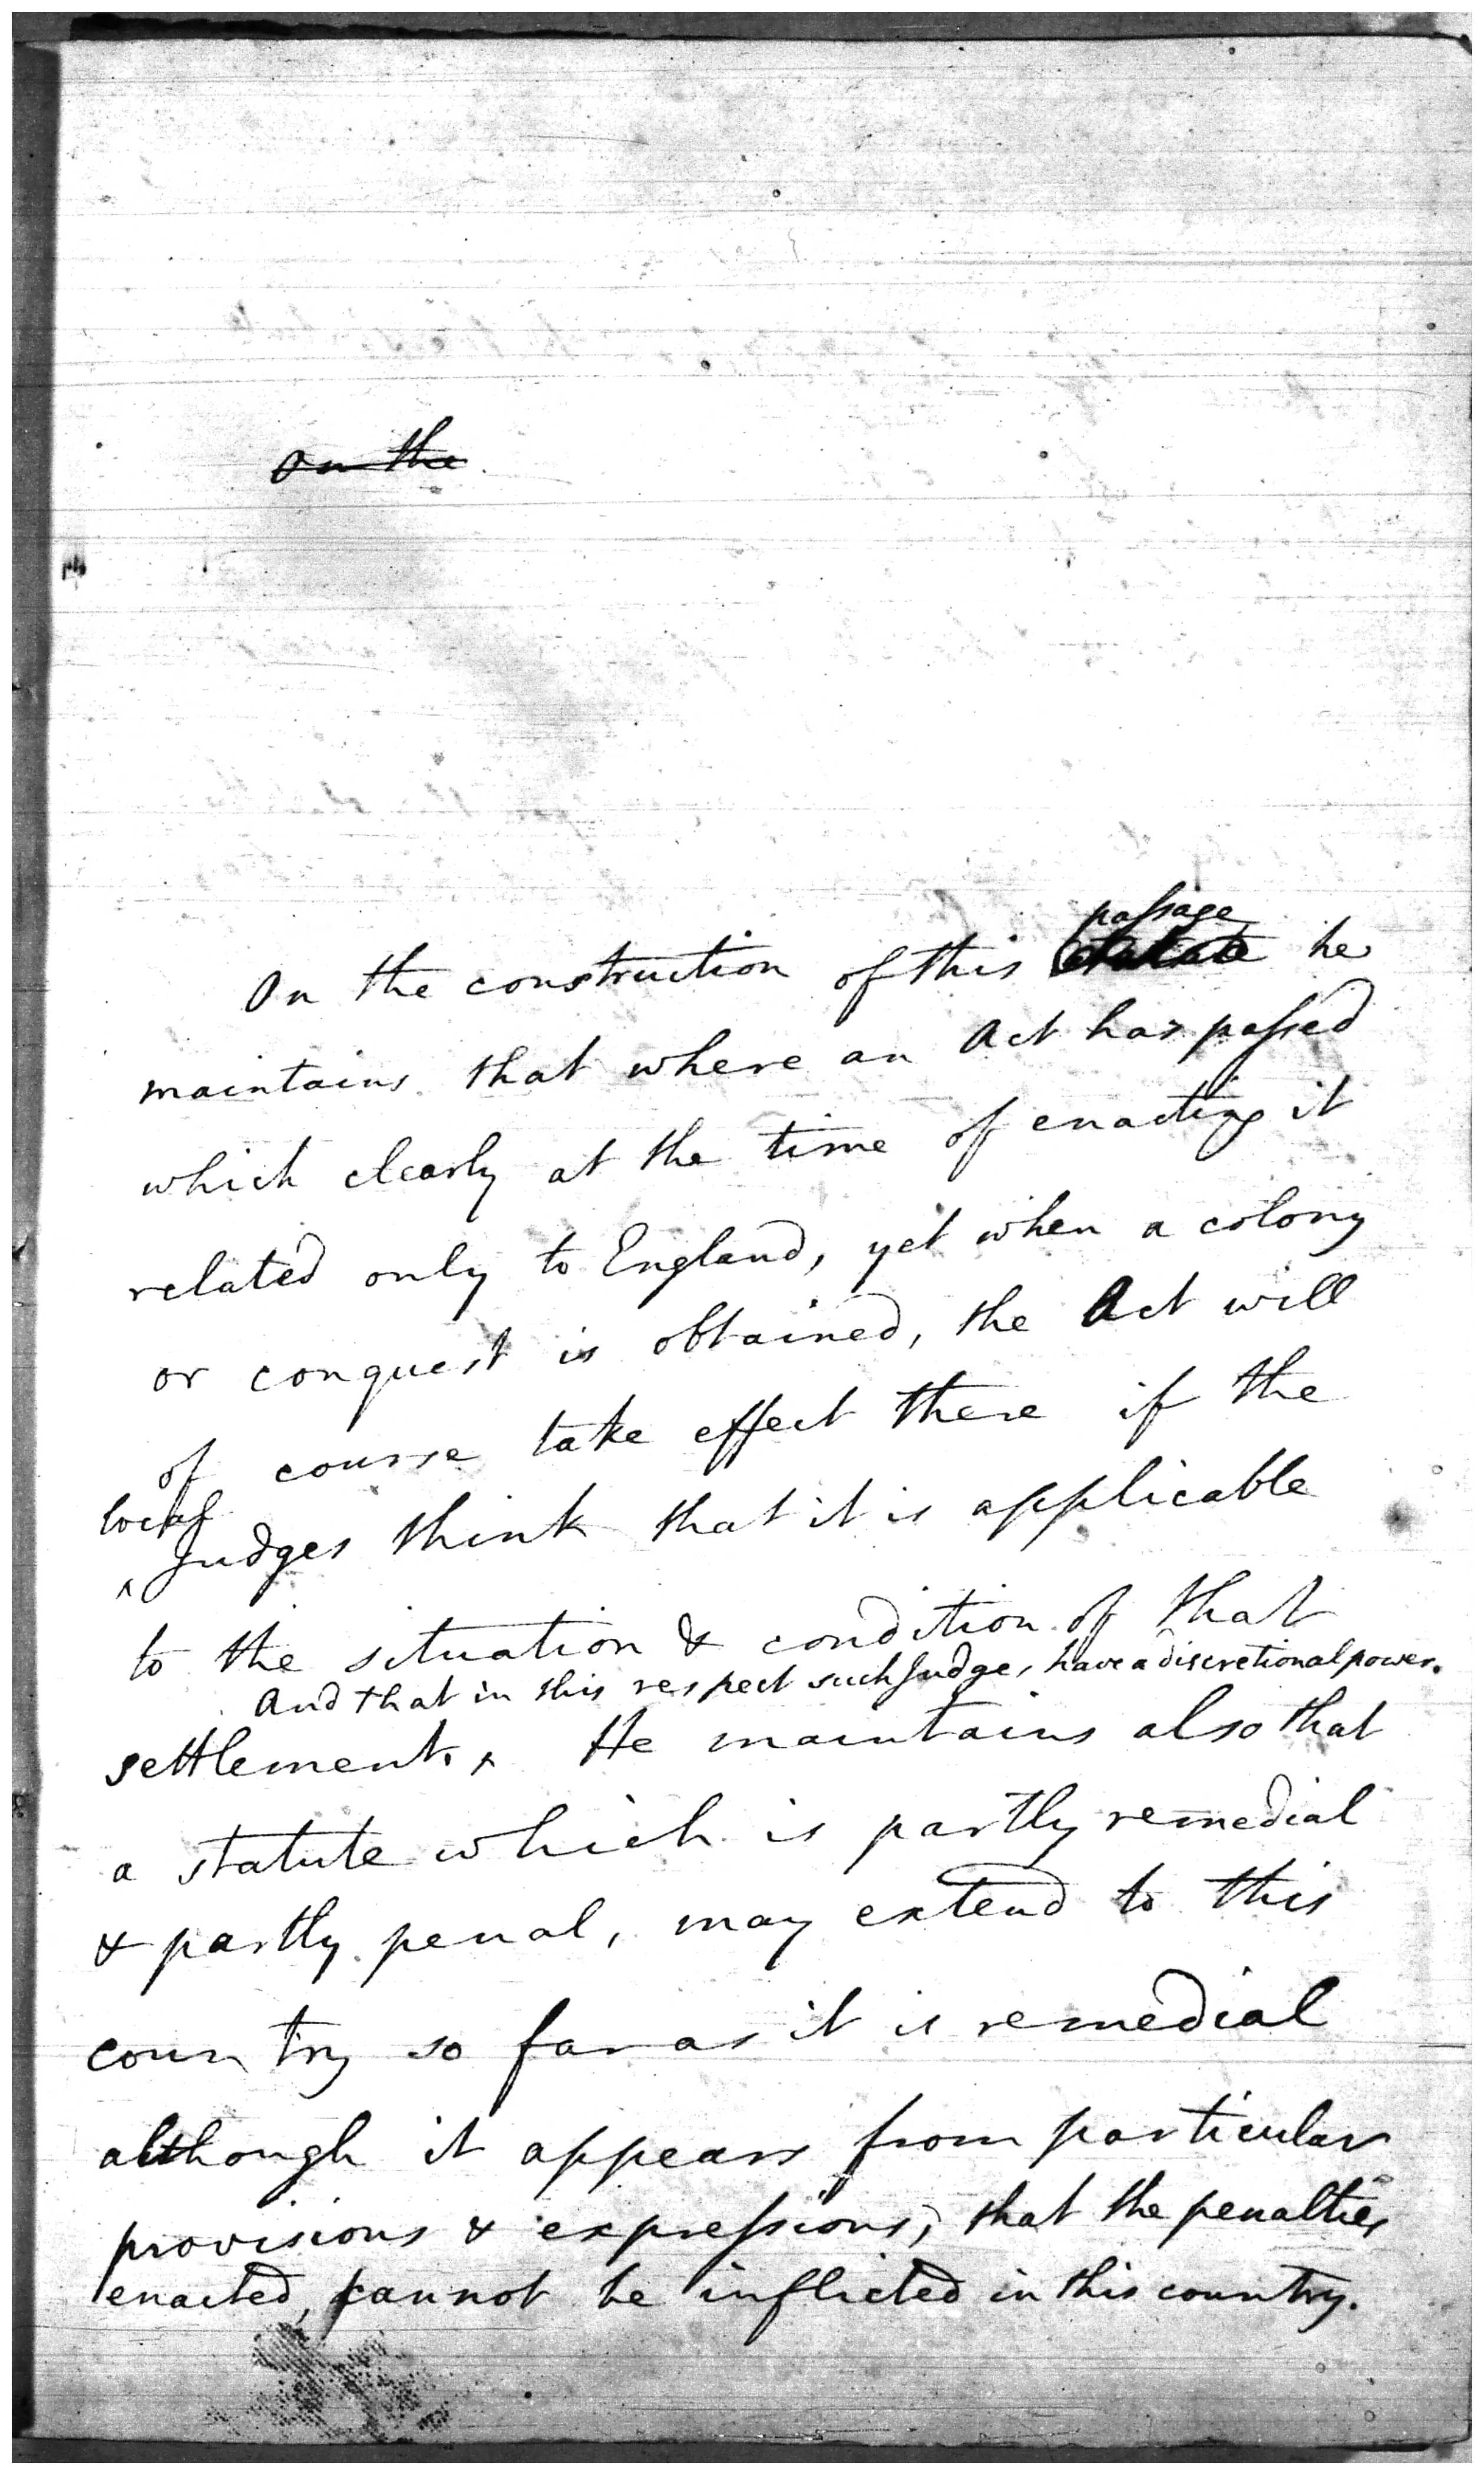 On the
passage
On the construction of this statute he
maintains that where an Act has passed
which clearly at the time of enacting it
related only to England, yet when a colony
or conquest is obtained, the Act will
of course take effect there if the
local
Judges think that it is applicable
to the situation & condition of that
And that in this respect such Judges have a discretional power.
settlement. He maintains also that
a statute which is partly remedial
& partly penal, may extend to this
country so far as it is remedial
although it appears from particular
provisions & expressions, that the penalties
enacted, cannot be inflicted in this country.